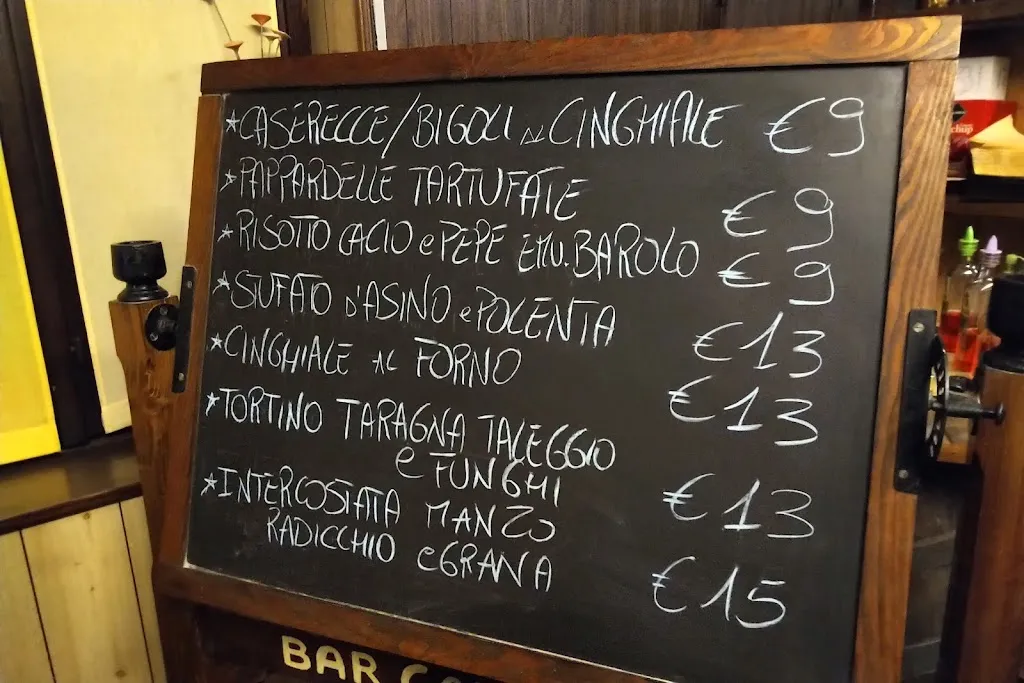 *CASERECCE/BIGOLI AL CINGHIALE €9
*PAPPARDELLE TARTUFATE €9
*RISOTTO CACIO e PEPE E RID. BAROLO €9
*STUFATO D'ASINO e POLENTA €13
*CINGHIALE AL FORNO €13
*TORTINO TARAGNA TALEGGIO
e FUNGHI €13
*INTERCOSTATA MANZO
RADICCHIO e GRANA €15
BAR
chup